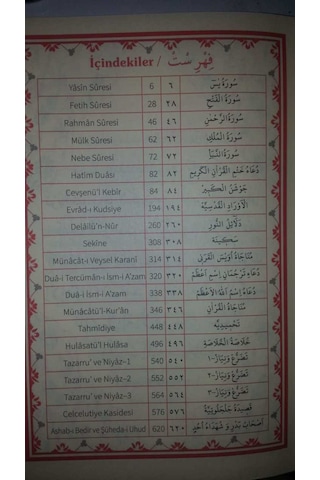 İçindekiler / فِهْرِسْتْ
Yâsîn Sûresi 6 ٦ سُورَةُ يٰسٓ
Fetih Sûresi 28 ٢٨ سُورَةُ الْفَتْحِ
Rahmân Sûresi 46 ٤٦ سُورَةُ الرَّحْمٰنِ
Mülk Sûresi 62 ٦٢ سُورَةُ الْمُلْكِ
Nebe Sûresi 72 ٧٢ سُورَةُ النَّبَأِ
Hatim Duâsı 82 ٨٢ دُعَاءُ خَتْمِ الْقُرْاٰنِ الْكَرِيمِ
Cevşenü'l Kebîr 84 ٨٤ جَوْشَنُ الْكَبِيرُ
Evrâd-ı Kudsiye 194 ١٩٤ اَوْرَادُ الْقُدْسِيَّةِ
Delâilü'n-Nûr 260 ٢٦٠ دَلَائِلُ النُّورِ
Sekîne 308 ٣٠٨ سَكِينَةْ
Münâcât-ı Veysel Karanî 314 ٣١٤ مُنَاجَاةُ اُوَيْسِ الْقَرَنِى
Duâ-i Tercümân-ı İsm-i A'zam 320 ٣٢٠ دُعَاءِ تَرْجُمَانِ اِسْمِ اَعْظَمْ
Duâ-i İsm-i A'zam 338 ٣٣٨ دُعَاءُ اِسْمِ اللّٰهِ الْاَعْظَمِ
Münâcâtü'l-Kur'ân 346 ٣٤٦ مُنَاجَاةُ الْقُرْاٰنِ
Tahmîdiye 448 ٤٤٨ تَحْمِيدِيَّه
Hulâsatü'l Hulâsa 496 ٤٩٦ خُلَاصَةُ الْخُلَاصَةِ
Tazarru' ve Niyâz-1 540 ٥٤٠ تَضَرُّعْ وَنِيَازْ-١
Tazarru' ve Niyâz-2 552 ٥٥٢ تَضَرُّعْ وَنِيَازْ-٢
Tazarru' ve Niyâz-3 564 ٥٦٤ تَضَرُّعْ وَنِيَازْ-٣
Celcelutiye Kasidesi 576 ٥٧٦ قَصِيدَهٔ جَلْجَلُوتِيَّه
Ashab-ı Bedir ve Şüheda-i Uhud 620 ٦٢٠ اَصْحَابِ بَدْرْ وَ شُهَدَاءِ اُحُدْ